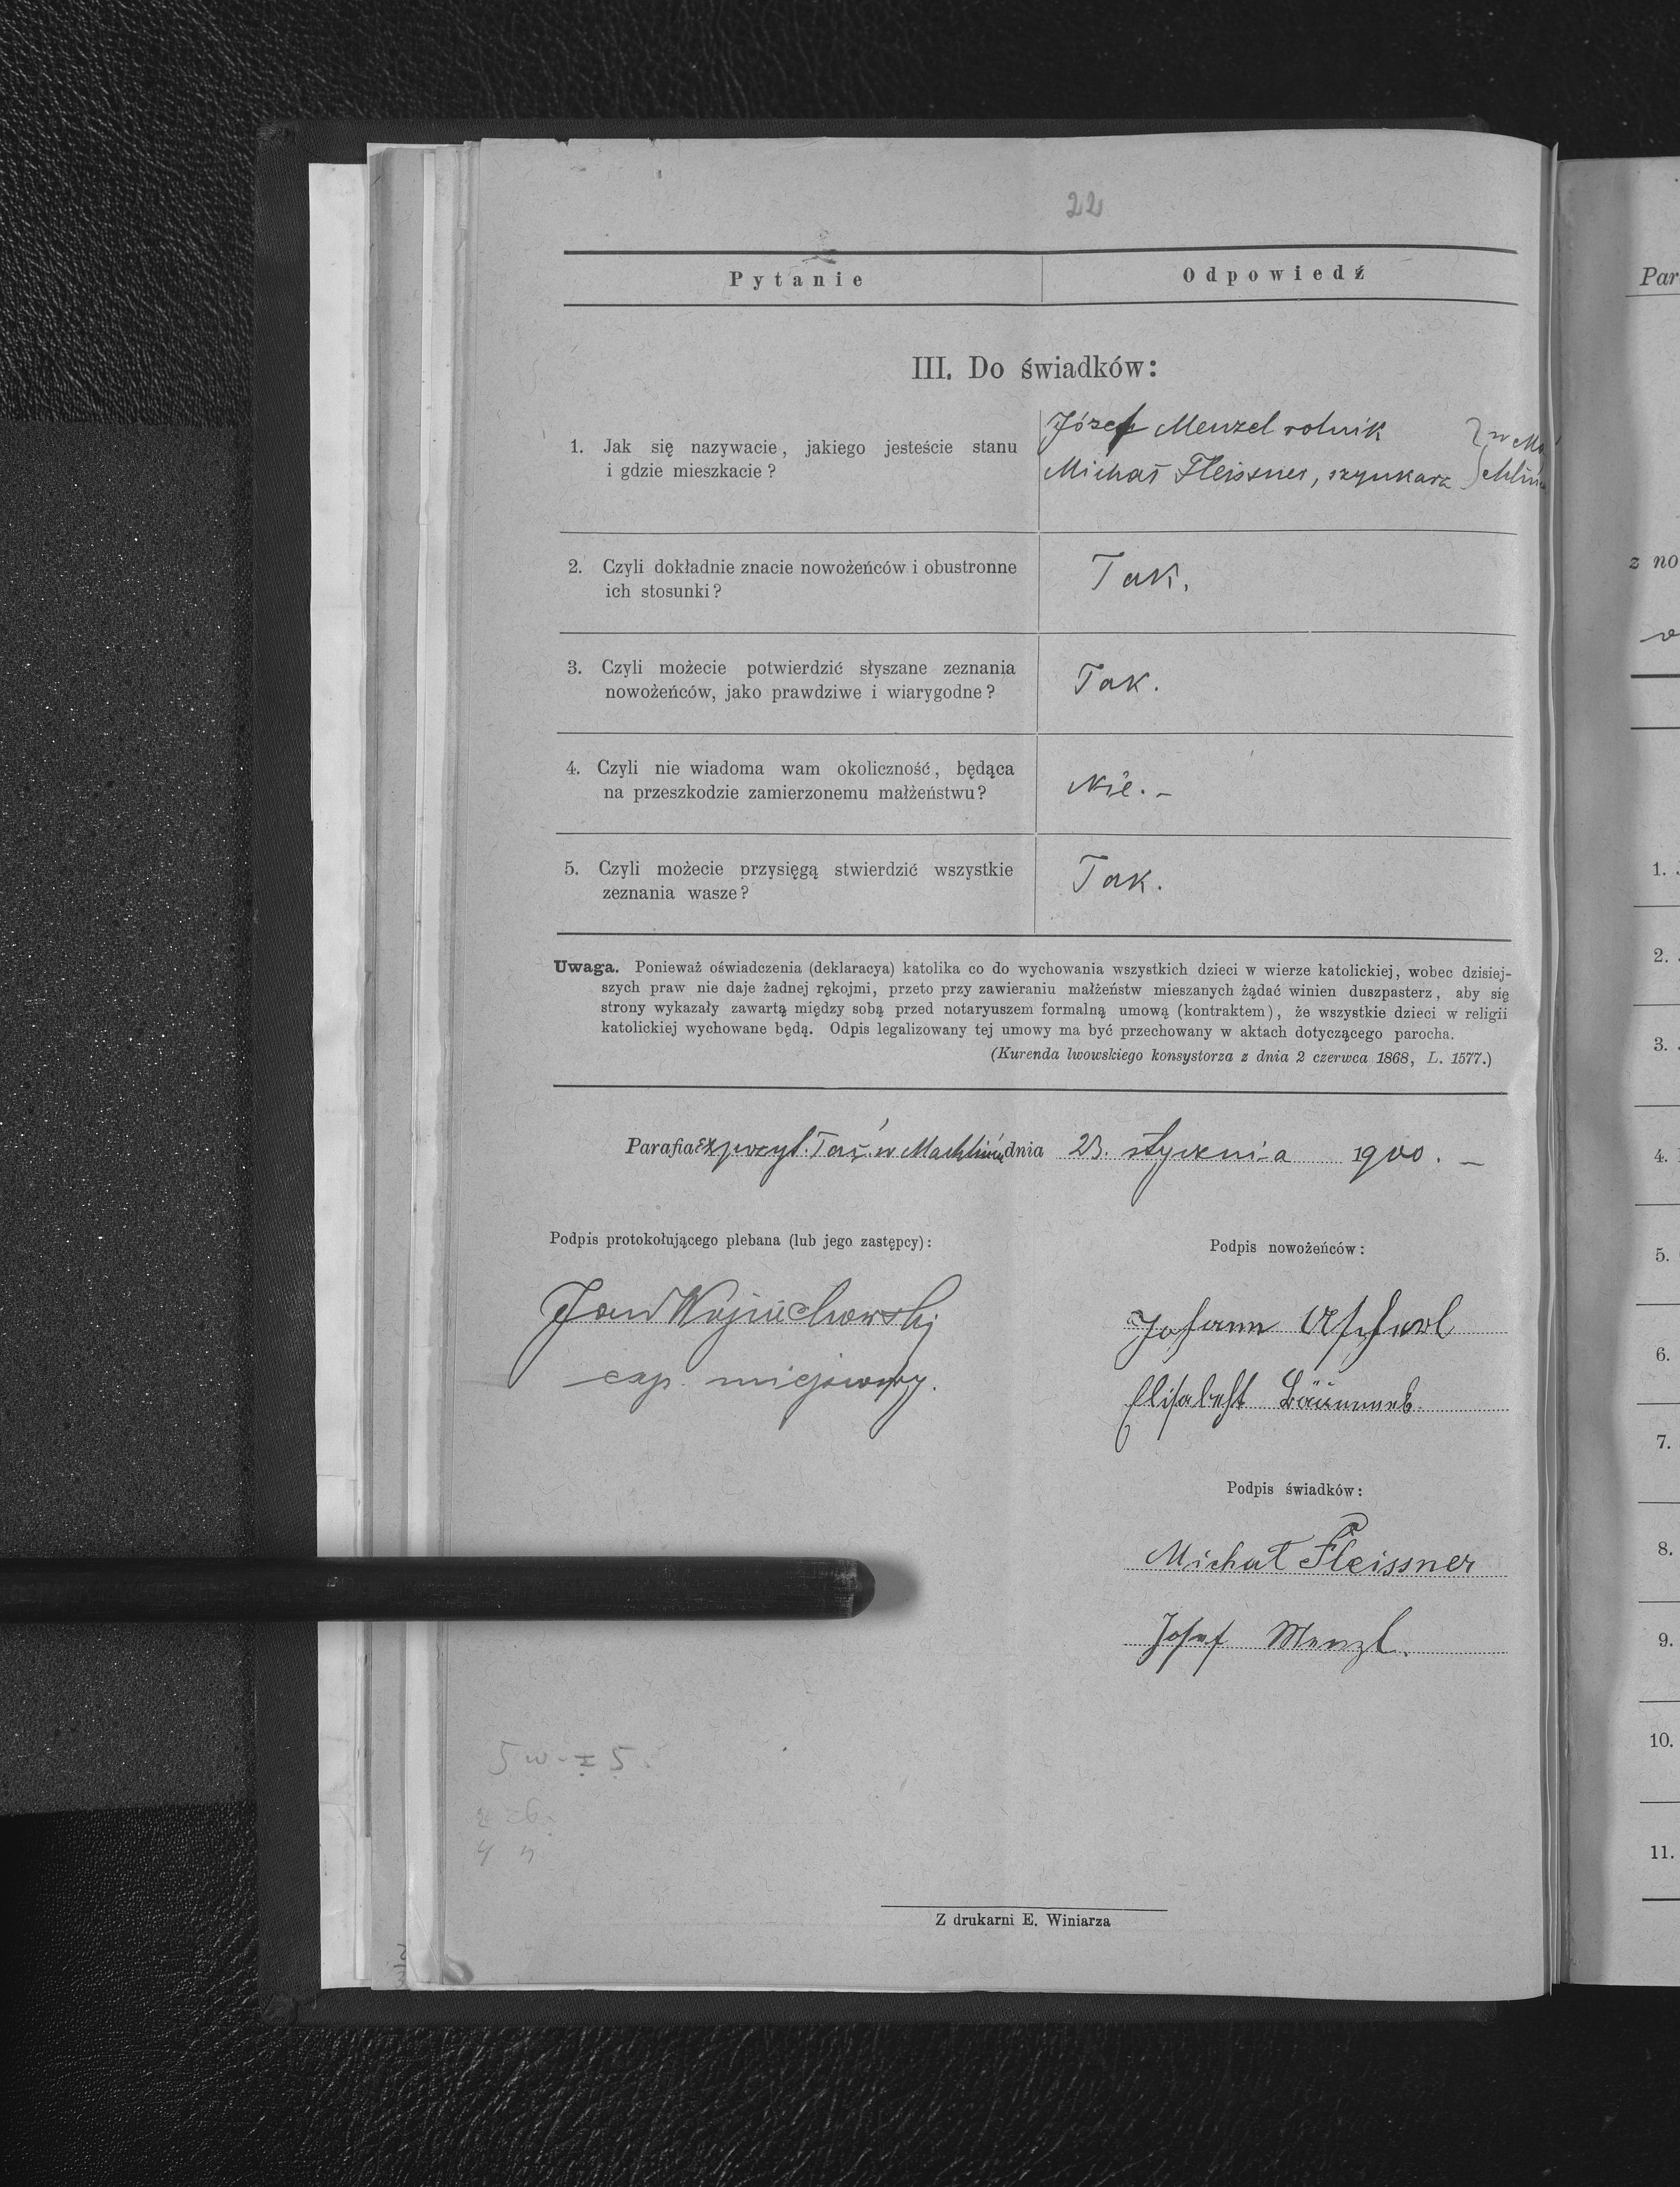 22
Pytanie
Odpowiedź
III. Do świadków:
1. Jak się nazywacie, jakiego jesteście stanu
i gdzie mieszkacie?
Józef Menzel rolnik
Michał Fleissner, szynkarz
2. Czyli dokładnie znacie nowożeńców i obustronne
ich stosunki?
Tak.
3. Czyli możecie potwierdzić słyszane zeznania
nowożeńców, jako prawdziwe i wiarygodne?
Tak.
4. Czyli nie wiadoma wam okoliczność, będąca
na przeszkodzie zamierzonemu małżeństwu?
Nie. –
5. Czyli możecie przysięgą stwierdzić wszystkie
zeznania wasze?
Tak.
Uwaga. Ponieważ oświadczenia (deklaracya) katolika co do wychowania wszystkich dzieci w wierze katolickiej, wobec dzisiej-
szych praw nie daje żadnej rękojmi, przeto przy zawieraniu małżeństw mieszanych żądać winien duszpasterz, aby się
strony wykazały zawartą między sobą przed notaryuszem formalną umową (kontraktem), że wszystkie dzieci w religii
katolickiej wychowane będą. Odpis legalizowany tej umowy ma być przechowany w aktach dotyczącego parocha.
(Kurenda lwowskiego konsystorza z dnia 2 czerwca 1868, L. 1577.)
Parafia w Machlińcu dnia 23. stycznia 1900. –
Podpis protokołującego plebana (lub jego zastępcy):
Jan Wojciechowski
exp. miejscowy.
Podpis nowożeńców:
Johann
Elisabeht
Podpis świadków:
Michał Fleissner
Josef Menzl.
Z drukarni E. Winiarza
Par
z no
1.
2.
3.
4.
5.
6.
7.
8.
9.
10.
11.